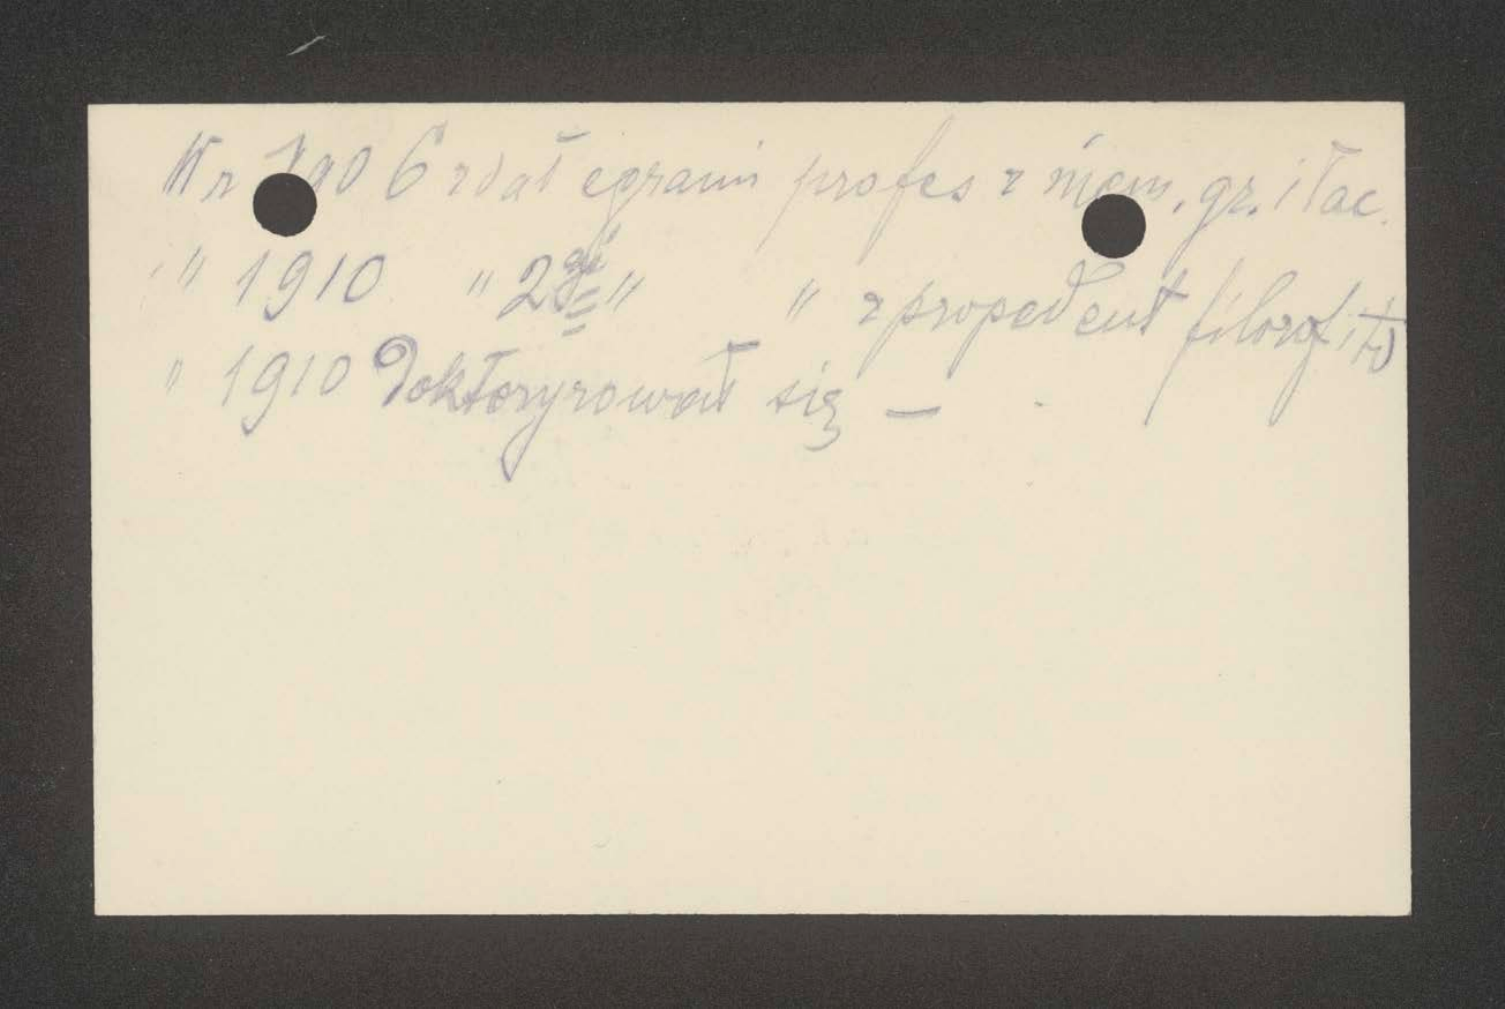 W r 1906 zdał egzamin profes z niem. gr. i łac.
" " 1910 " 2gi " " z propedeut filozof i
" 1910 Doktoryzował się —